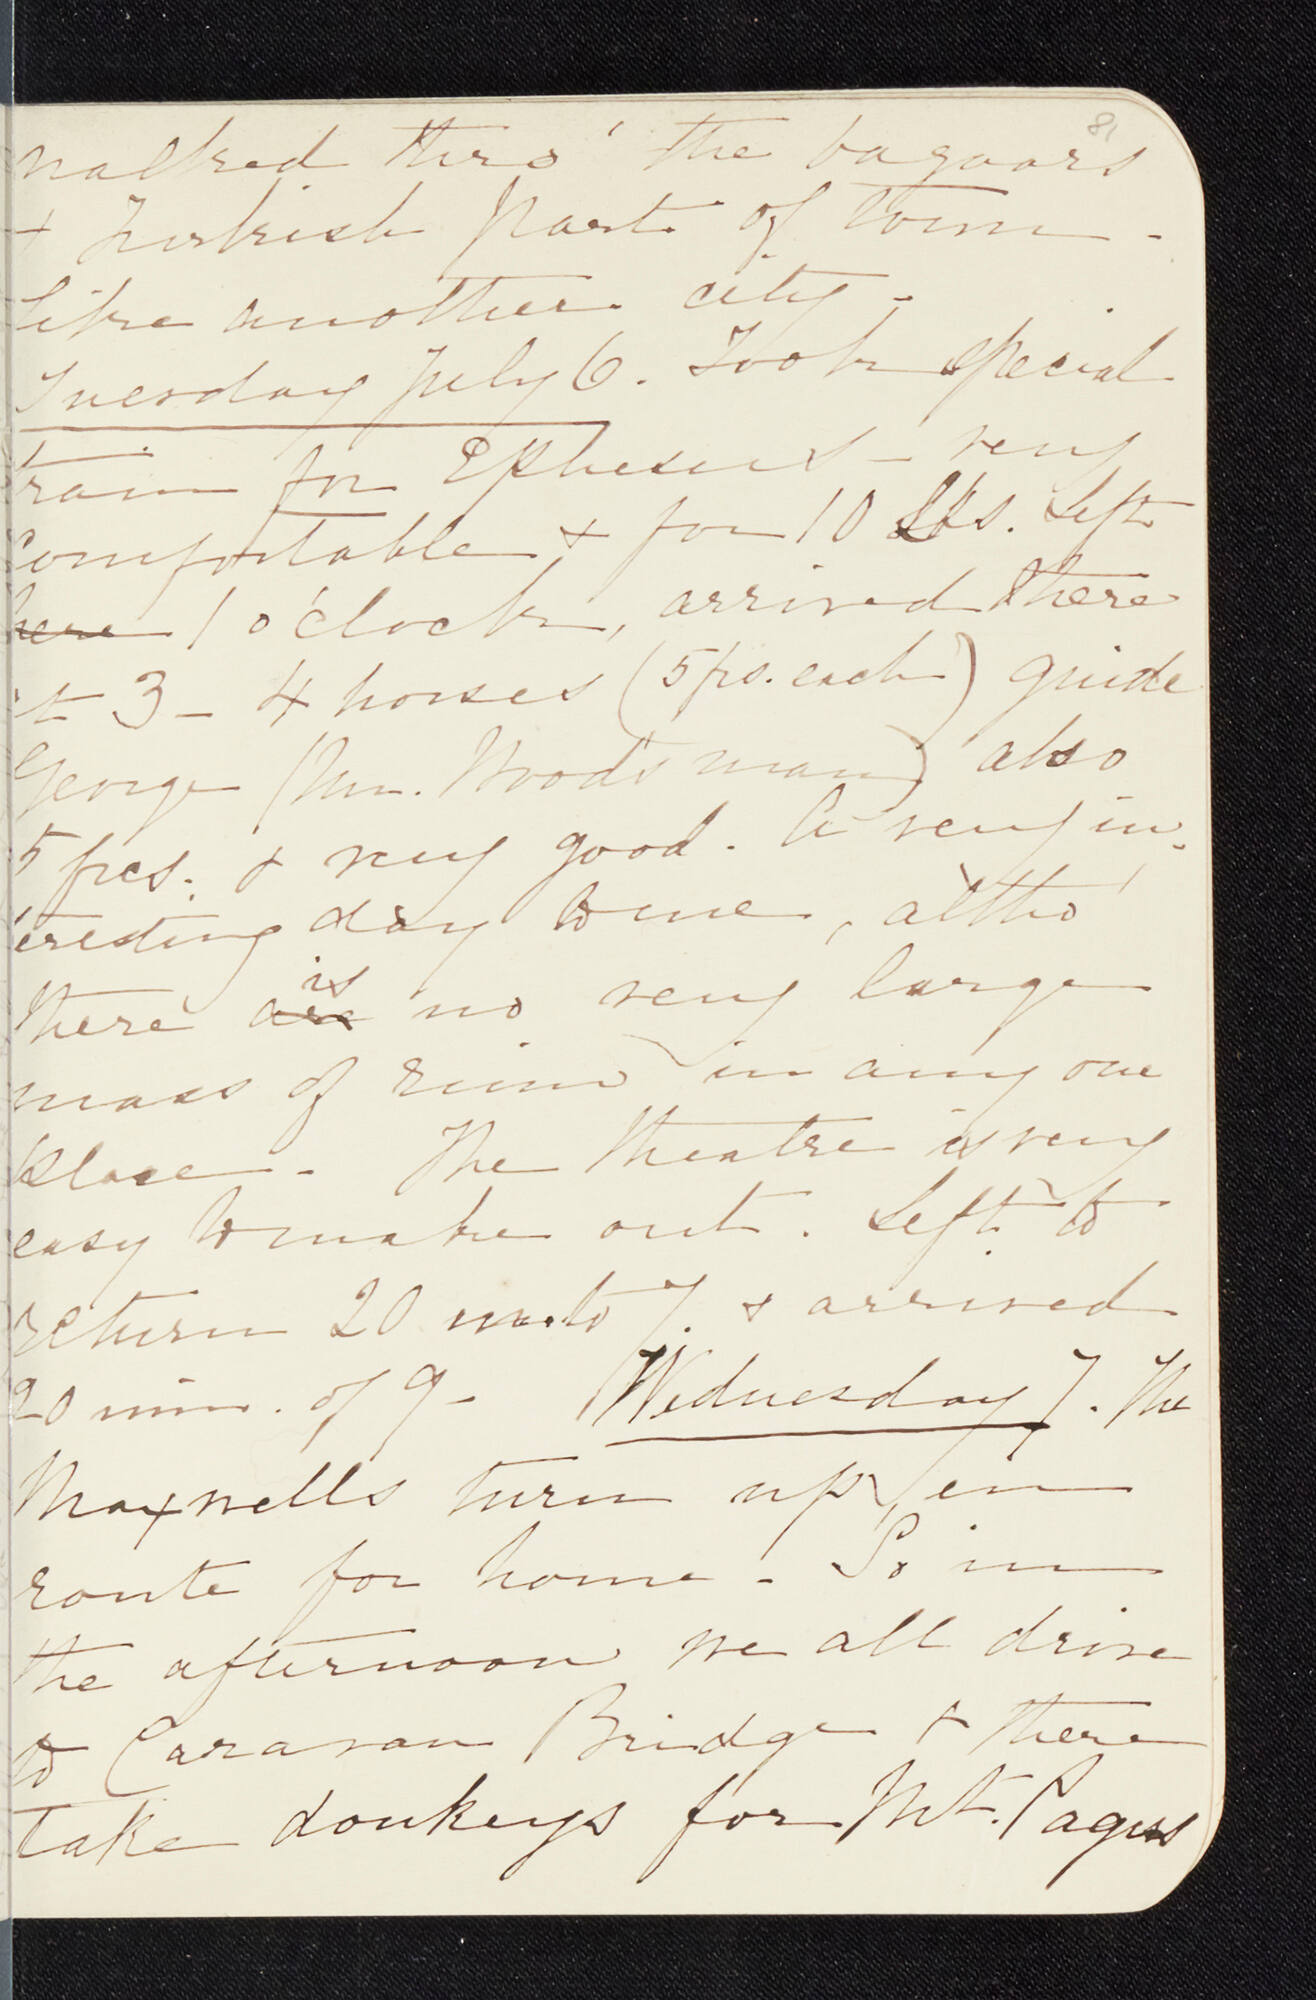 81
walked thro' the bazaars
& Turkish part of town -
like another city -
Tuesday July 6. Took special
train for Ephesus - very
comfortable & for 10 £bs. Left
here 1 o'clock, arrived there
at 3 - 4 horses (5 frs. each) guide
George (Mr. Wood's man) also
5 frcs. & very good. A very in-
teresting day to me, altho'
there are is no very large
mass of ruin in any one
place - The theatre is very
easy to make out. Left to
return 20 m. to 7. & arrived
20 min. of 9 - Wednesday 7. The
Maxwells turn up, en
route for home - So in
the afternoon we all drive
to Caravan Bridge & there
take donkeys for Mt. Pagus